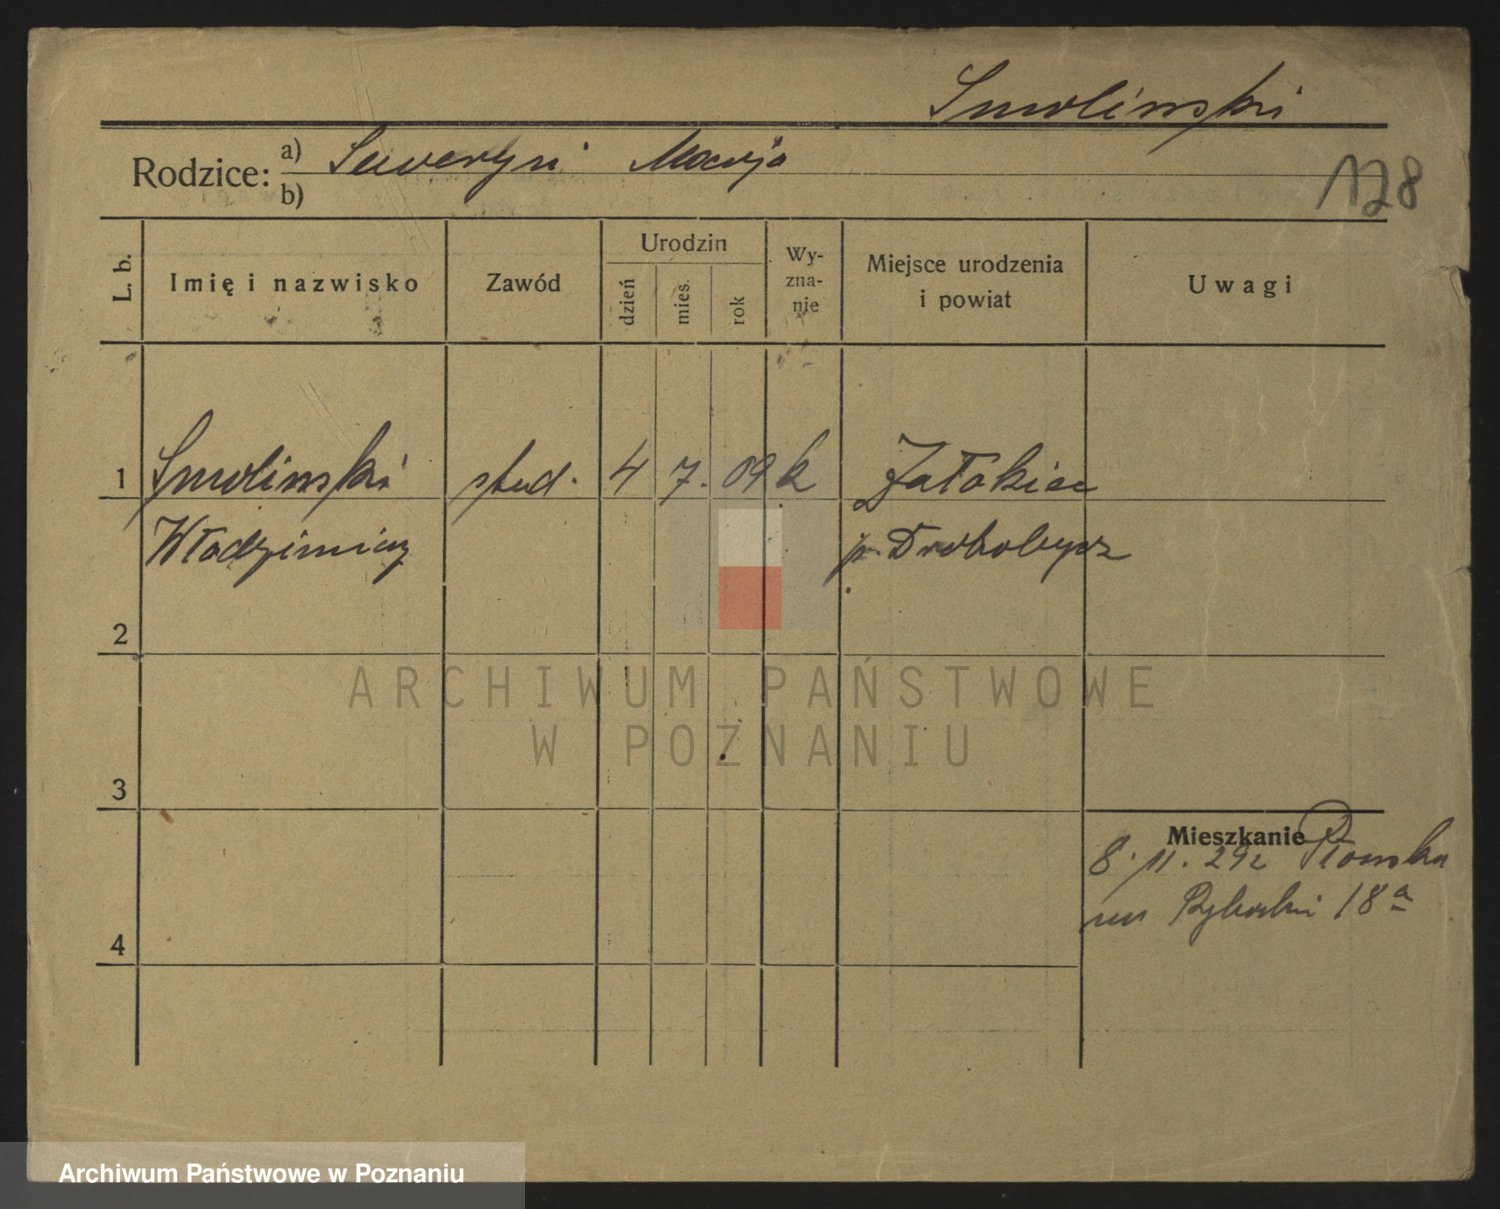 Smolinski
Rodzice: a) Seweryn Marja
b)
128
L. b.
Imię i nazwisko
Zawód
Urodzin
dzień
mies.
rok
Wy-
zna-
nie
Miejsce urodzenia
i powiat
Uwagi
1 Smolinski stud. 4 7. 09 k Załokiec
Włodzimierz p. Drohobycz
2
ARCHIWUM PAŃSTWOWE
W POZNANIU
3
Mieszkanie
8. 11. 29
18a
4
Archiwum Państwowe w Poznaniu